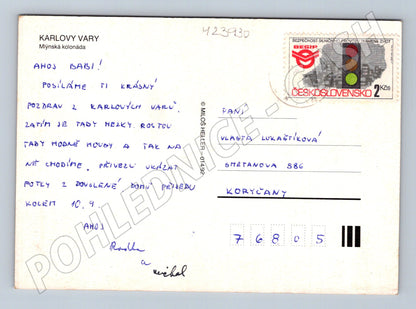 4235930
KARLOVY VARY
Mlýnská kolonáda
AHOJ BABI!
POSÍLÁME TI KRÁSNÝ
POZDRAV Z KARLOVÝCH VARŮ.
ZATÍM JE TADY HEZKY. ROSTOU
TADY HODNĚ HOUBY A TAK NA
NĚ CHODÍME. PŘIVEZU UKÁZAT
FOTKY Z DOVOLENÉ DOMŮ PŘIJEDU
KOLEM 10.9.
AHOJ
Radka
a Michal
© MILOŠ HELLER - 014/92
BEZPEČNOST SILNIČNÍHO PROVOZU
BESIP
ČESKOSLOVENSKO
2 Kčs
PANÍ
VLASTA LUKAŠTÍKOVÁ
SMETANOVA 886
KORYČANY
76805
POHLEDNICE - CASH